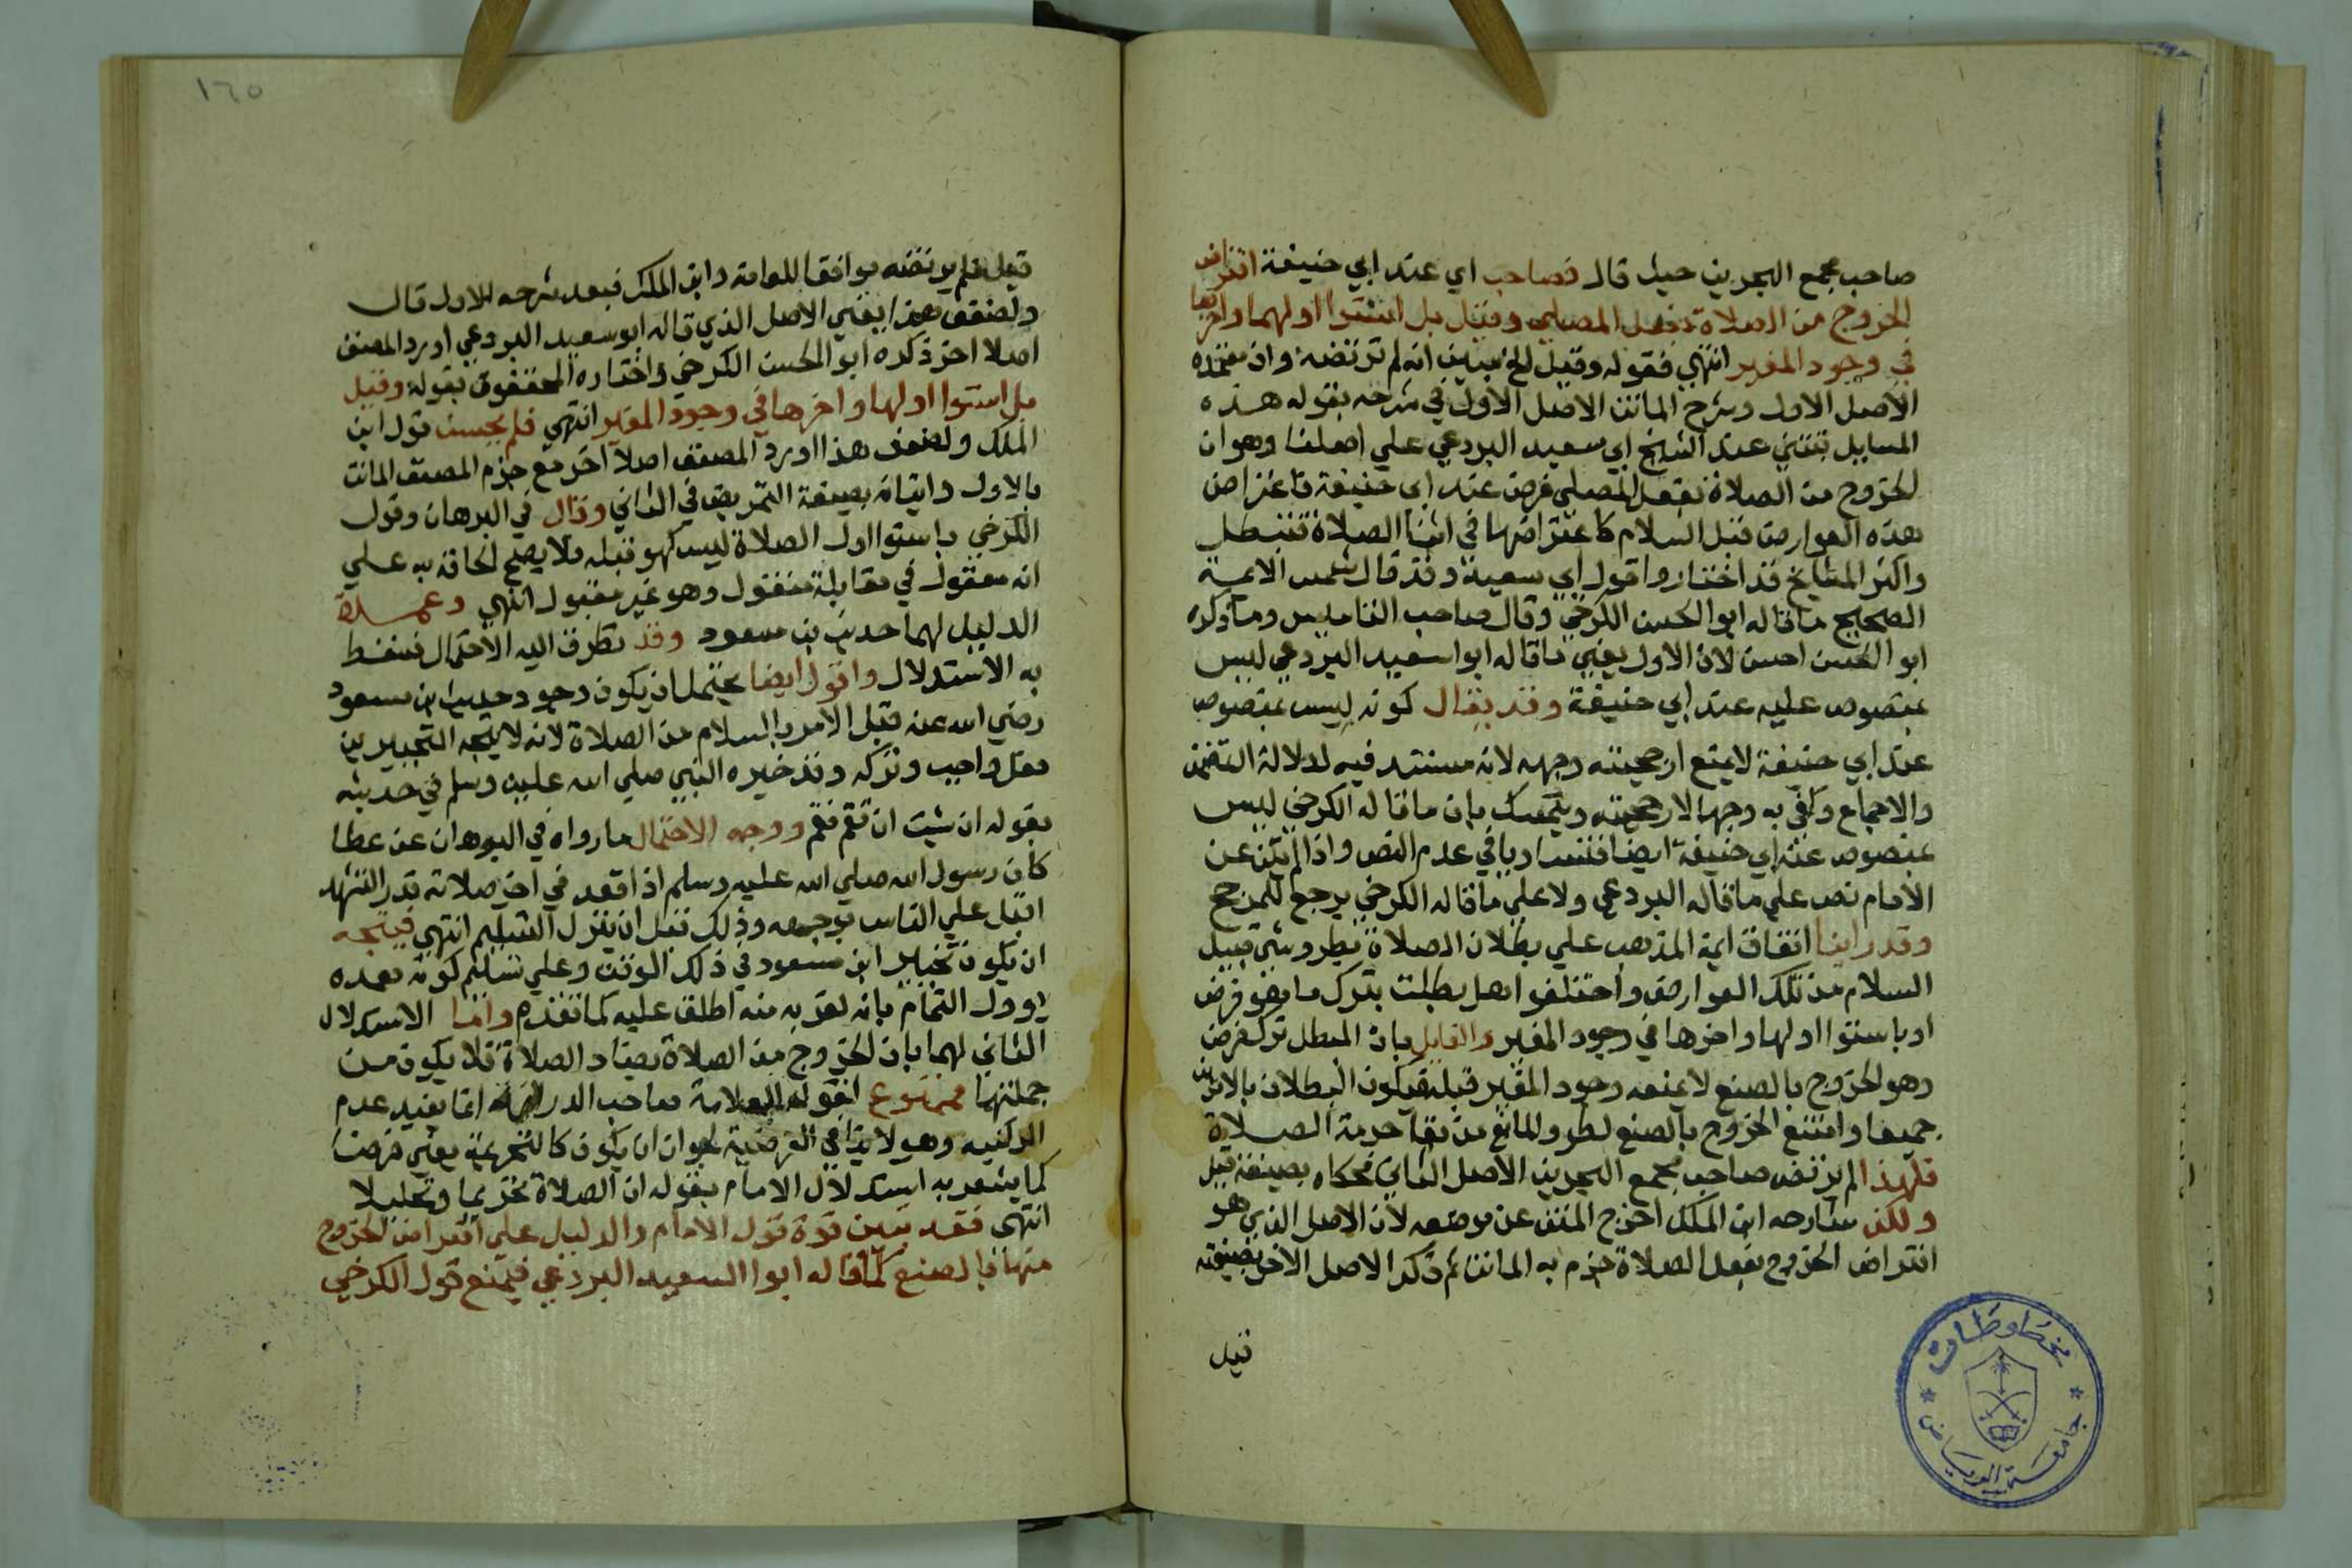 صاحب مجمع البحرين حيث قال فصاحب اي عند ابي حنيفة افتراض
الخروج من الصلاة بفعل المصلي وقيل بل استوا اولها واخرها
في وجود المغير انتهي فقوله وقيل الخ يبين انه لم ترتضه وان معتمده
الاصل الاول وشرح الماتن الاصل الاول في شرحه بقوله هذه
المسايل تبتني عند الشيخ ابي سعيد البردعي علي اصلنا وهو ان
الخروج من الصلاة بفعل المصلي فرض عند ابي حنيفة فاعتراض
هذه العوارض قبل السلام كاعتراضها في اثنا الصلاة فتبطل
واكثر المشايخ قد اختاروا قول ابي سعيد وقد قال شمس الايمة
الصحيح ما قاله ابو الحسن الكرخي وقال صاحب التاسيس وما ذكره
ابو الحسن احسن لان الاول يعني ما قاله ابوا سعيد البردعي ليس
بمنصوص عليه عند ابي حنيفة وقد يقال كونه ليس بمنصوص
عند ابي حنيفة لا يمنع ارجحيته وجهه لانه مستند فيه لدلالة التضمن
والاجماع وكفي به وجها لارجحيته ويتمسك بان ما قاله الكرخي ليس
بمنصوص عند ابي حنيفة ايضا فتساويا في عدم النص واذا لم يكن عن
الامام نص علي ما قاله البردعي ولا علي ما قاله الكرخي يرجع للمرجح
وقد راينا اتفاق ايمة المذهب علي بطلان الصلاة بطرو شي قبيل
السلام من تلك العوارض واختلفوا هل بطلت بترك ما هو فرض
او باستوا اولها واخرها في وجود المغير والقايل بان المبطل ترك فرض
وهو الخروج بالصنع لا يمنعه وجود المغير قبله فيكون البطلان بالامرين
جميعا وامتنع الخروج بالصنع لطرو المانع من بقا حرمة الصلاة
فلهذا لم يرتض صاحب مجمع البحرين الاصل الثاني فحكاه بصيغة قيل
ولكن شارحه ابن الملك اخرج المتن عن موضعه لان الاصل الذي هو
افتراض الخروج بفعل الصلاة جزم به الماتن ثم ذكر الاصل الاخر بصيغة
قيل
١٦٥
قيل فلم يرتضه موافقا للعامة وابن الملك فبعد شرحه للاول قال
ولضعف هذا يعني الاصل الذي قاله ابو سعيد البردعي اورد المصنف
اصلا اخر ذكره ابو الحسن الكرخي واختاره المحققون بقوله وقيل
بل استوا اولها واخرها في وجود المغير انتهي فلم يحسن قول ابن
الملك ولضعف هذا اورد المصنف اصلا اخر مع جزم المصنف الماتن
بالاول واتيانه بصيغة التمريض في الثاني وقال في البرهان وقول
الكرخي باستوا اول الصلاة ليس كهو قبله فلا يصح الحاقه به علي
انه معقول في مقابلة منقول وهو غير مقبول انتهي وعمدة
الدليل لهما حديث بن مسعود وقد تطرق اليه الاحتمال فسقط
به الاستدلال واقول ايضا يحتمل ان يكون وجود حديث ابن مسعود
رضي الله عنه قبل الامر بالسلام من الصلاة لانه لا يتجه التخيير بين
فعل واجب وتركه وقد خيره النبي صلي الله عليه وسلم في حديثه
بقوله ان شيت ان تقم فقم ووجه الاحتمال ما رواه في البرهان عن عطا
كان رسول الله صلي الله عليه وسلم اذا قعد في اخر صلاته قدر التشهد
اقبل علي الناس بوجهه وذلك قبل ان ينزل التسليم انتهي فيتجه
ان يكون تخيير ابن مسعود في ذلك الوقت وعلي تسليم كونه بعده
يوول التمام بانه لقربه منه اطلق عليه كما تقدم واما الاستدلال
الثاني لهما بان الخروج من الصلاة يضاد الصلاة فلا يكون من
جملتها ممنوع لقول العلامة صاحب الدراية انما يفيد عدم
الركنيه وهو لا ينافي الفرضية لجواز ان يكون كالتحريمة يعني فرضا
كما يشعر به استدلال الامام بقوله ان الصلاة تحريما وتحليلا
انتهى فقد تبين قوة قول الامام والدليل علي افتراض الخروج
منها بالصنع كما قاله ابوا السعيد البردعي فيمنع قول الكرخي
مخطوطات
جامعة الرياض